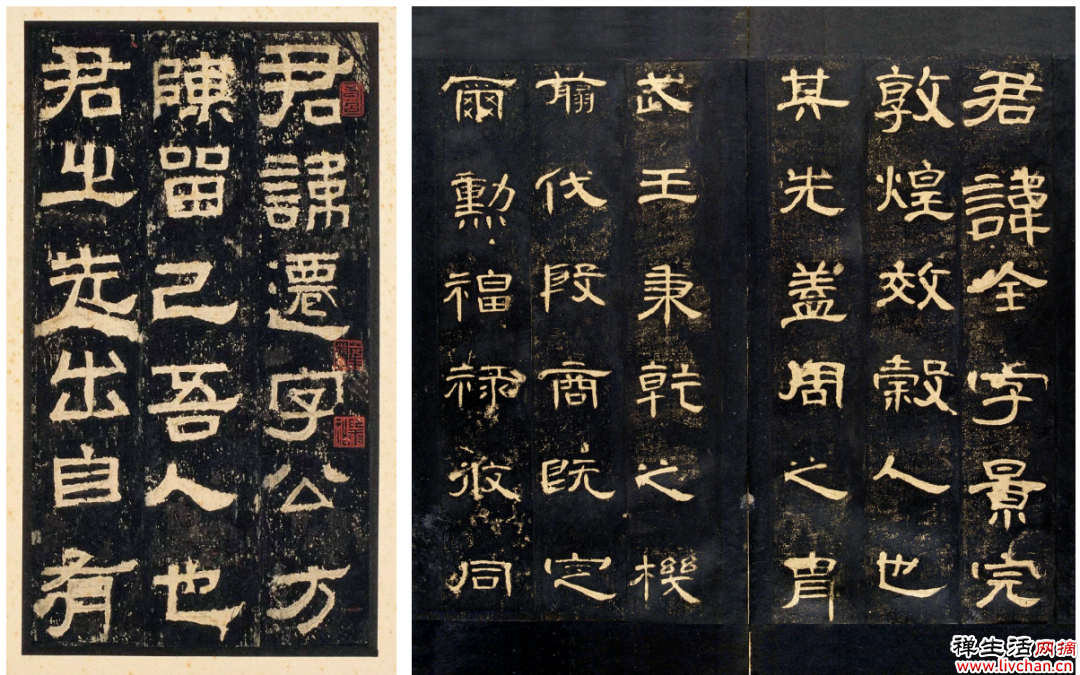 君諱遷字公方
陳留己吾人也
君之先出自有
君諱全字景完
敦煌效穀人也
其先蓋周之胄
武王秉乾之機
翦伐殷商既定
爾勳福祿攸同
禅生活网摘
www.livchan.cn